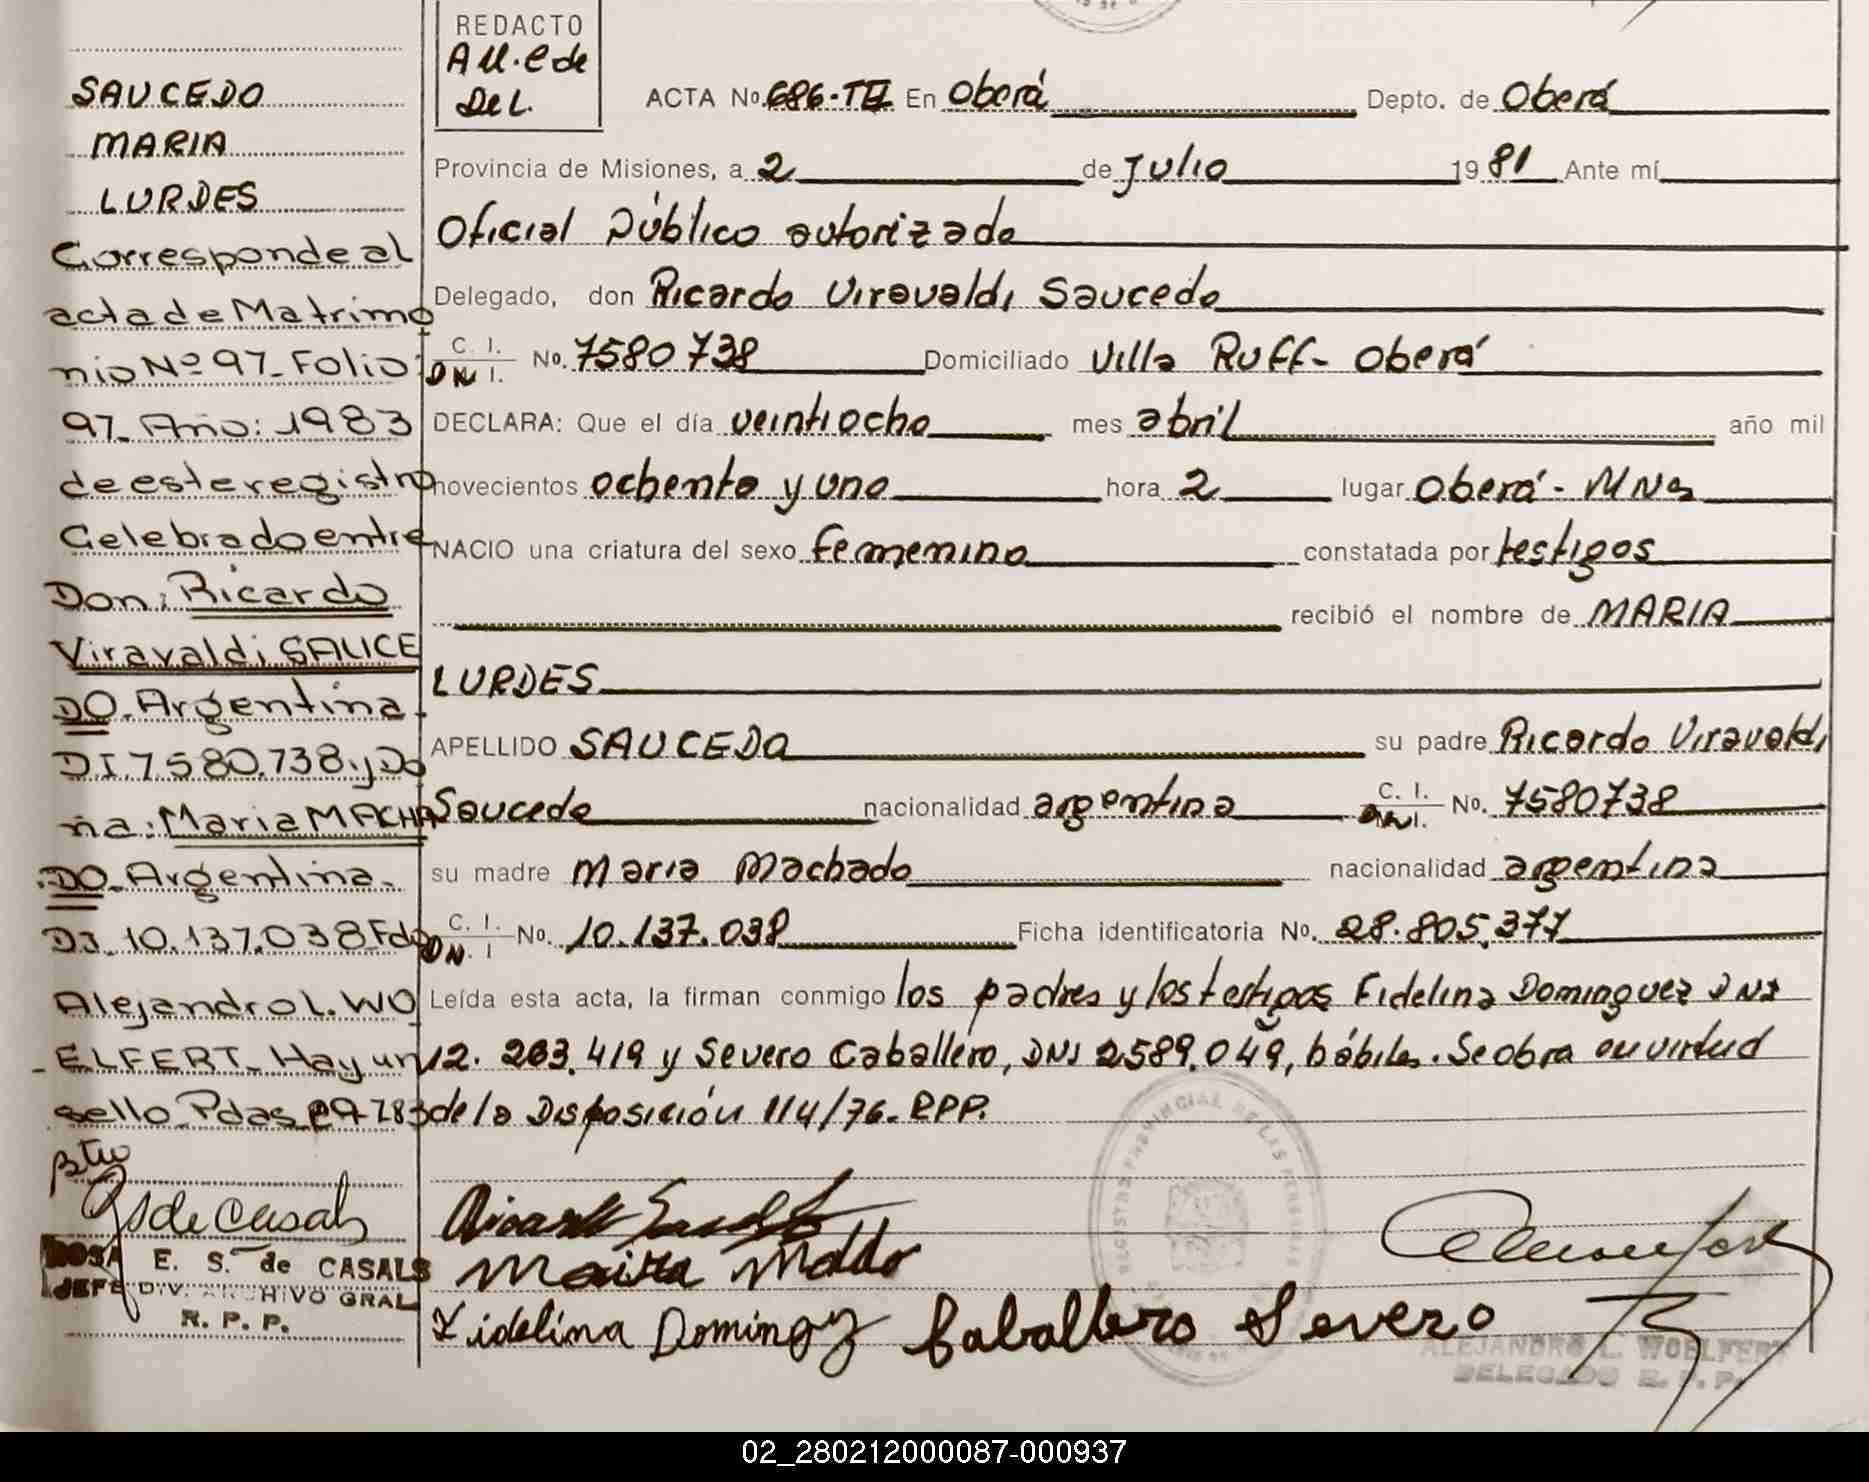 SAUCEDO
MARIA
LURDES
Corresponde al
acta de Matrimo
nio Nº 97_Folio:
97_Año: 1983
de este registro
Celebrado entre
Don: Ricardo
Viravaldi SAUCE
DO. Argentina.
DI 7.580.738. y Do
ña: Maria MACHA
DO. Argentina.
DI. 10.137.038 Fdo
Alejandro L. WO
ELFERT_ Hay un
sello. Pdas
Rs de Casals
ROSA E. S. de CASALS
JEFE DIV. ARCHIVO GRAL
R. P. P.
REDACTO
de
Del.
ACTA No. 686-TII En Oberá Depto. de Oberá
Provincia de Misiones, a 2 de Julio 19 81 Ante mí
Oficial Público autorizado
Delegado, don Ricardo Viravaldi Saucedo
C. I.
DN I. No. 7580738 Domiciliado Villa Ruff- Oberá
DECLARA: Que el día veintiocho mes abril año mil
novecientos ochenta y uno hora 2 lugar Oberá - MNes
NACIO una criatura del sexo femenino constatada por testigos
recibió el nombre de MARIA
LURDES
APELLIDO SAUCEDO su padre Ricardo Viravaldi
Saucedo nacionalidad argentina C. I. DN I. No. 7580738
su madre Maria Machado nacionalidad argentina
C. I. DN. I No. 10.137.038 Ficha identificatoria No. 28.805.377
Leída esta acta, la firman conmigo los padres y los testigos Fidelina Dominguez DNI
12.263.419 y Severo Caballero, DNI 2589.049, hábiles. Se obra en virtud
de la Disposición 114/76. RPP.
REGISTRO PROVINCIAL DE LAS PERSONAS
Fidelina Doming Caballero Severo
ALEJANDRO L. WOELFERT
DELEGADO R. P. P.
02_280212000087-000937